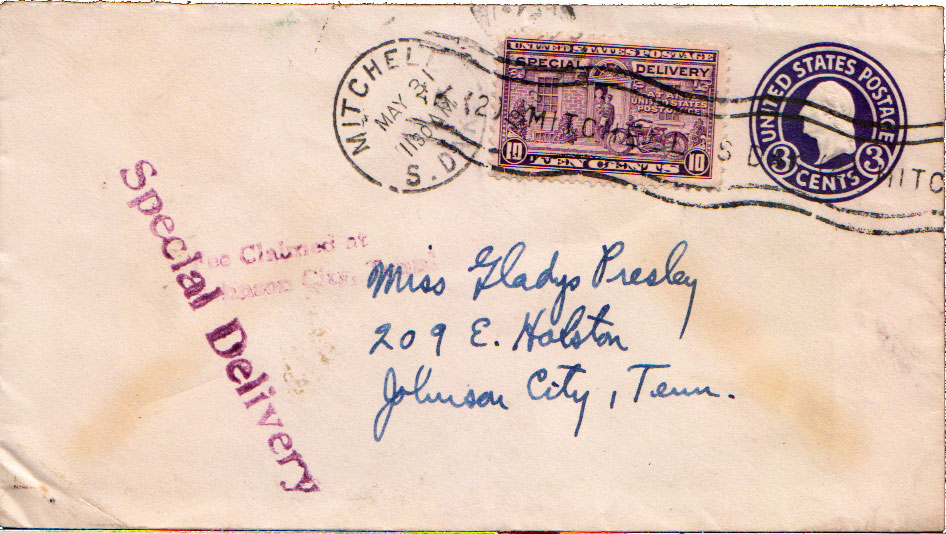 MITCHELL
MAY 21
1130AM
S.D.
UNITED STATES POSTAGE
SPECIAL DELIVERY
AT ANY
UNITED STATES
POST OFFICE
10 TEN CENTS 10
(2) MITCHELL S D MITC
UNITED STATES POSTAGE
3 CENTS 3
Special Delivery
Fee Claimed at
Johnson City, Tenn.
Miss Gladys Presley
209 E. Holston
Johnson City, Tenn.